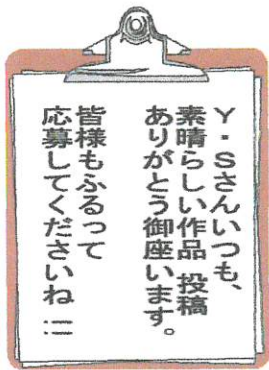 Y・Sさんいつも、
素晴らしい作品 投稿
ありがとう御座います。
皆様もふるって
応募してくださいね !!